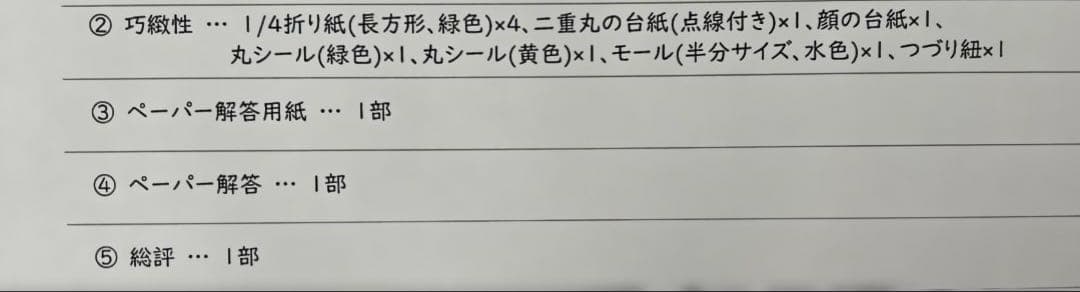 ② 巧緻性 … 1/4折り紙(長方形、緑色)×4、二重丸の台紙(点線付き)×1、顔の台紙×1、
丸シール(緑色)×1、丸シール(黄色)×1、モール(半分サイズ、水色)×1、つづり紐×1
③ ペーパー解答用紙 … 1部
④ ペーパー解答 … 1部
⑤ 総評 … 1部